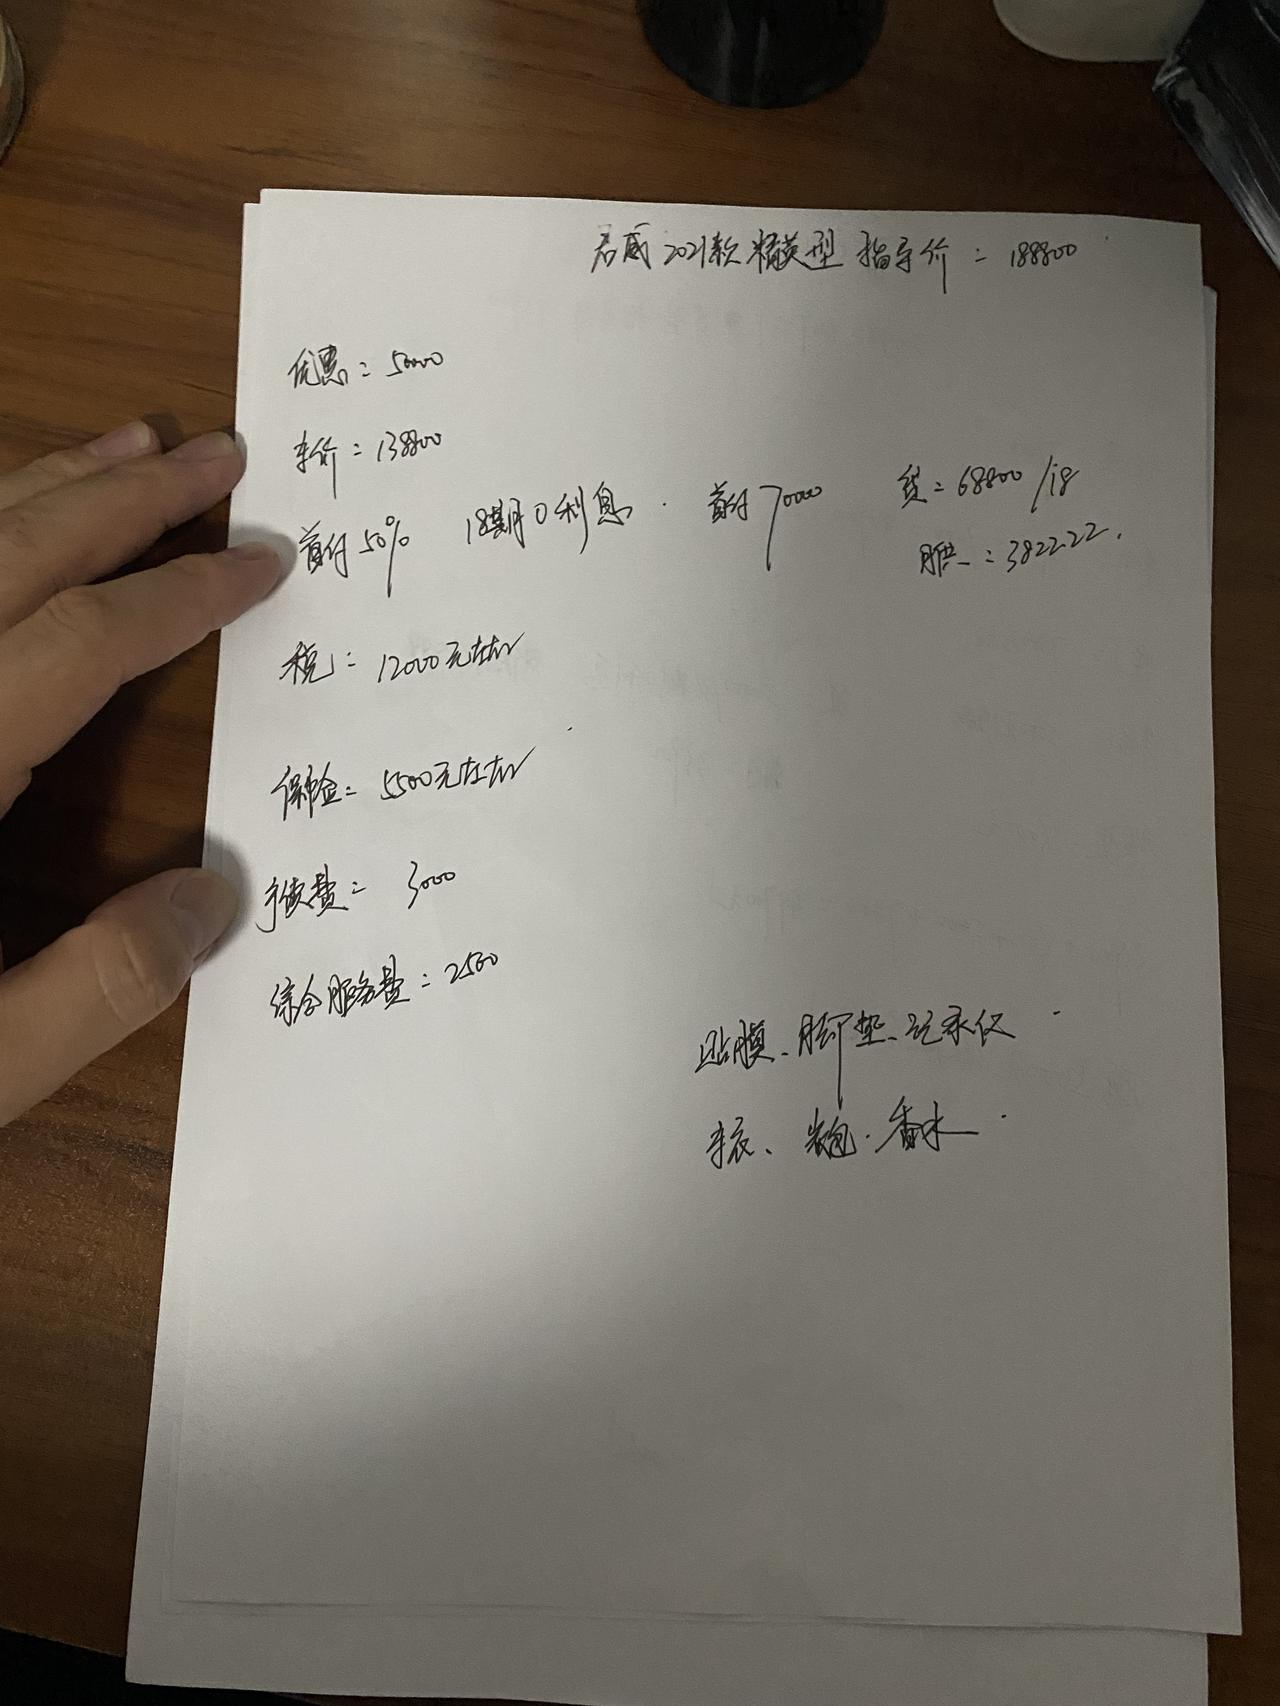 君威 2021款 精英型 指导价 = 188800
优惠 = 50000
车价 = 138800
首付 50% 18期 0 利息. 首付 70000 贷 = 68800 /18
月供 = 3822.22.
税 = 12000元左右
保险 = 5500元左右
手续费 = 3000
综合服务费 = 2500
贴膜、脚垫、记录仪
车衣、抱. 香水